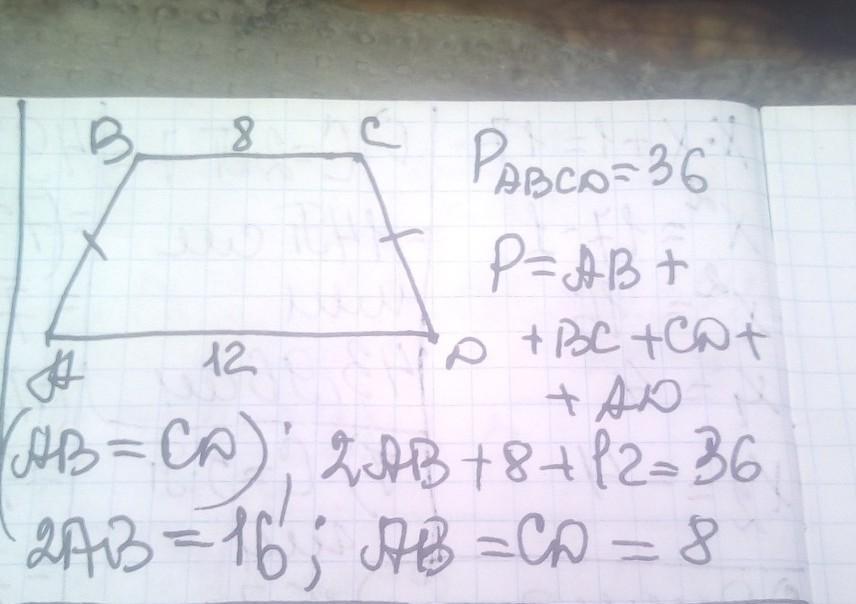 B 8 C
P ABCD = 36
P = AB +
+ BC + CD +
+ AD
A 12 D
(AB = CD); 2AB + 8 + 12 = 36
2AB = 16; AB = CD = 8